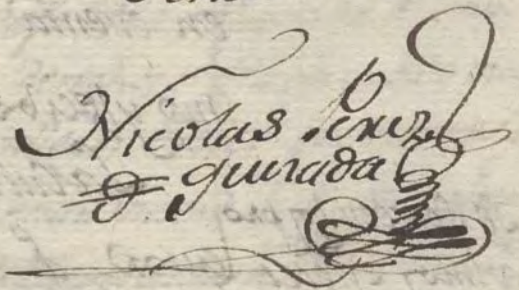 Nicolas Perez
de quirada